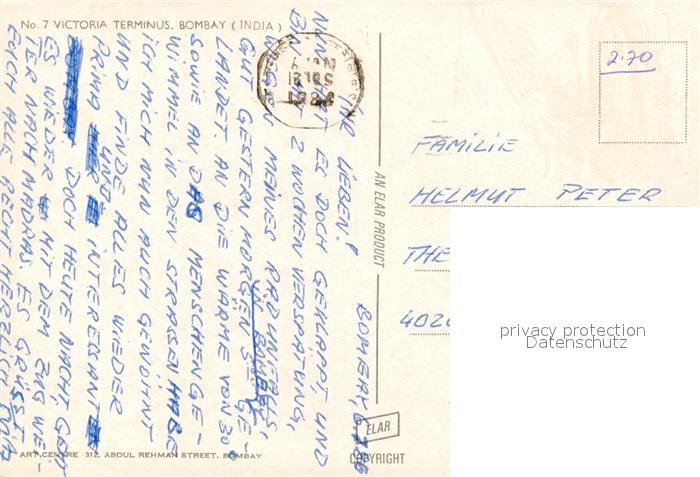 No. 7 VICTORIA TERMINUS, BOMBAY (INDIA)
BOMBAY,
IHR LIEBEN!
NUN HAT ES DOCH GEKLAPPT, UND
BIN MIT 2 WOCHEN VERSPÄTUNG,
WEGEN MEINES RADUNFALLS,
GUT GESTERN MORGEN IN BOMBAY GE-
LANDET. AN DIE WÄRME VON 30°
SOWIE AN DAS MENSCHENGE-
WIMMEL IN DEN STRASSEN HABE
ICH MICH NUN AUCH GEWÖHNT
UND FINDE ALLES WIEDER
PRIMA UND INTERESSANT
DOCH HEUTE NACHT, GEHT
ES WIEDER MIT DEM ZUG WEI-
TER NACH MADRAS. ES GRÜSST
EUCH ALLE RECHT HERZLICH
AN ELAR PRODUCT
ELAR
COPYRIGHT
ART CENTRE 312, ABDUL REHMAN STREET, BOMBAY
2.70
FAMILIE
HELMUT PETER
THE
402
privacy protection
Datenschutz